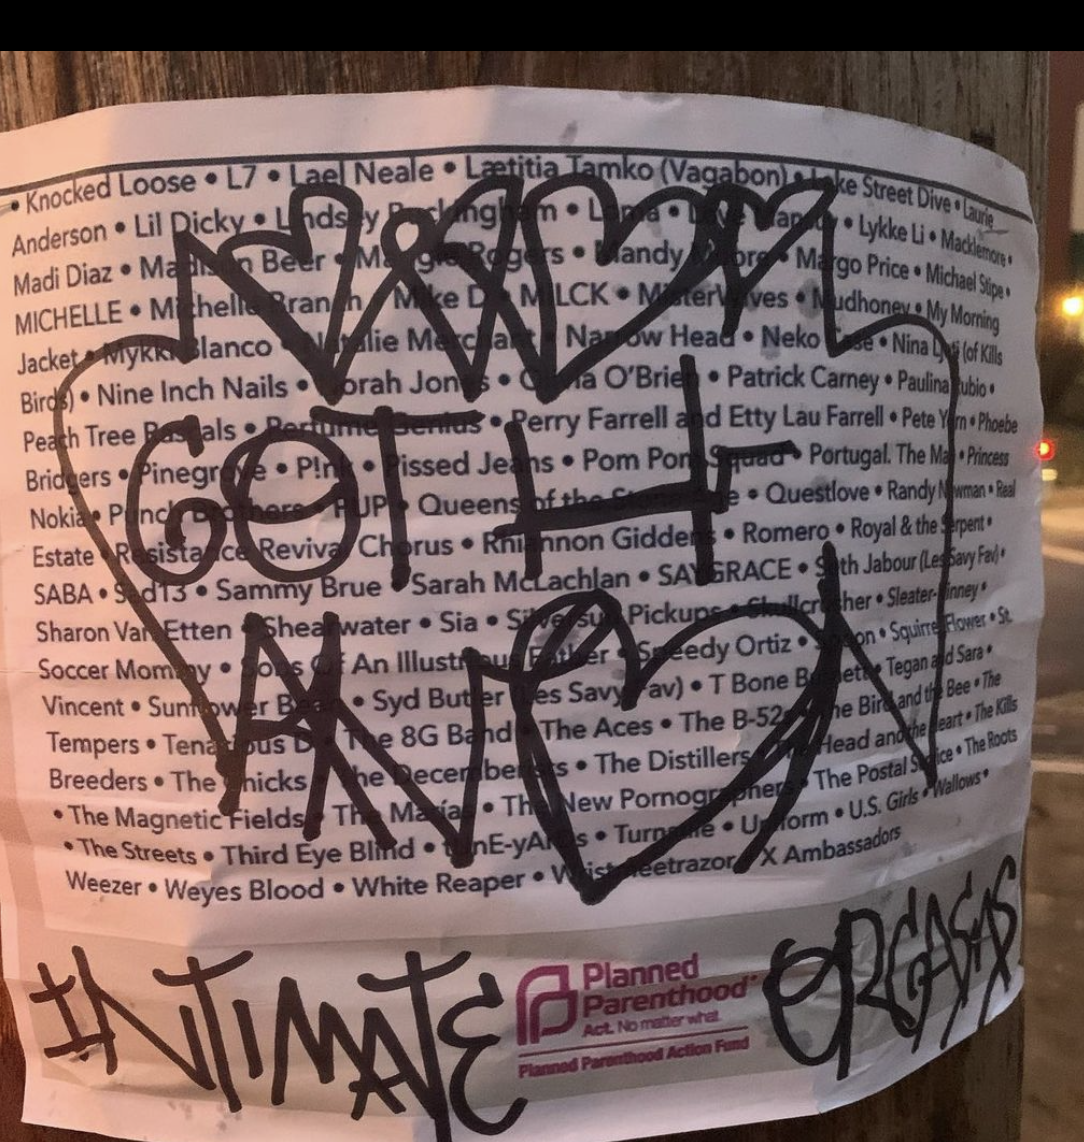 • Knocked Loose • L7 • Lael Neale • Lætitia Tamko (Vagabon) • Lake Street Dive • Laurie
Anderson • Lil Dicky • Lindsey Buckingham • Loma • Love Mansuy • Lykke Li • Macklemore •
Madi Diaz • Madison Beer • Maggie Rogers • Mandy Moore • Margo Price • Michael Stipe •
MICHELLE • Michelle Branch • Mike D • MILCK • MisterWives • Mudhoney • My Morning
Jacket • Mykki Blanco • Natalie Merchant • Narrow Head • Neko Case • Nina (of Kills
Birds) • Nine Inch Nails • Norah Jones • O'Brien • Patrick Carney • Paulina Rubio •
Peach Tree Rascals • Perfume Genius • Perry Farrell and Etty Lau Farrell • Pete Yorn • Phoebe
Bridgers • Pinegrove • P!nk • Pissed Jeans • Pom Pom Squad • Portugal. The Man • Princess
Nokia • Punch Brothers • PUP • Queens of the Stone Age • Questlove • Randy Newman • Real
Estate • Resistance Revival Chorus • Rhiannon Giddens • Romero • Royal & the Serpent •
SABA • Sad13 • Sammy Brue • Sarah McLachlan • SAYGRACE • Seth Jabour (Les Savy Fav) •
Sharon Van Etten • Shearwater • Sia • Silversun Pickups • Skullcrusher • Sleater-Kinney •
Soccer Mommy • Sons Of An Illustrious Father • Speedy Ortiz • Spoon • Squirrel Flower • St.
Vincent • Sunflower Bean • Syd Butler (Les Savy Fav) • T Bone Burnett • Tegan and Sara •
Tempers • Tenacious D • The 8G Band • The Aces • The B-52s • The Bird and the Bee • The
Breeders • The Chicks • The Decemberists • The Distillers • The Head and the Heart • The Kills
• The Magnetic Fields • The Marías • The New Pornographers • The Postal Service • The Roots
• The Streets • Third Eye Blind • tUnE-yArDs • Turnstile • Uniform • U.S. Girls • Wallows •
Weezer • Weyes Blood • White Reaper • Wristmeetrazor • X Ambassadors
GOTH
INTIMATE
Planned
Parenthood
Act. No matter what.
Planned Parenthood Action Fund
ORGASAS